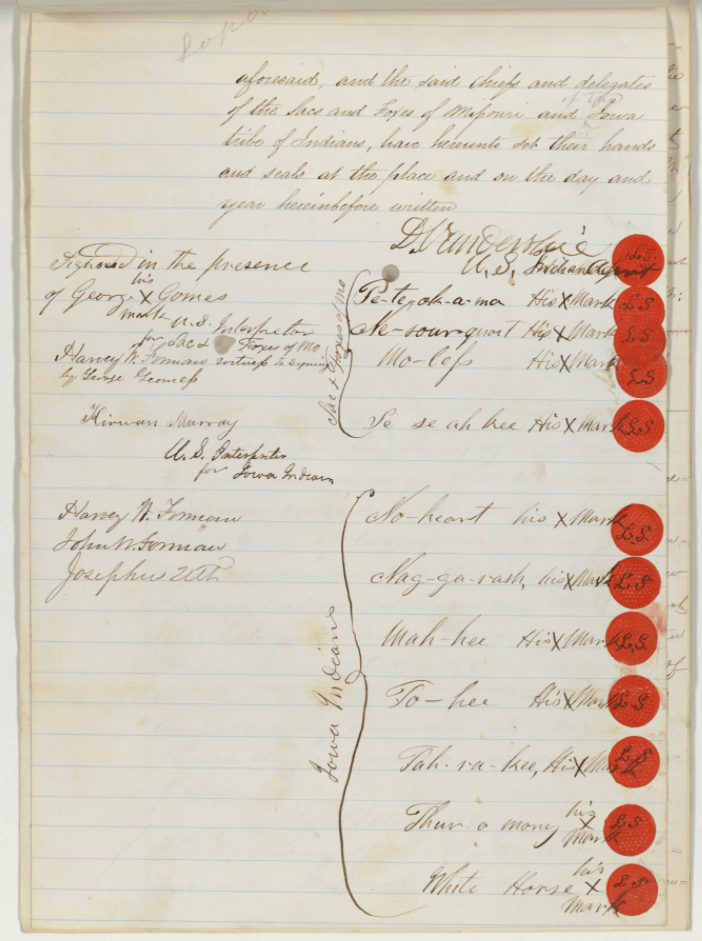 aforesaid, and the said chiefs and delegates
of the Sacs and Foxes of Missouri and Iowa
tribe of Indians, have hereunto set their hands
and seals at the place and on the day and
year hereinbefore written
D. Vanderslice
U.S. Indian Agent L.S.
Signed in the presence
of George his X mark Gomes
U.S. Interpreter
for Sacs & Foxes of Mo
Harvey W. Forman witness to signing
by George Gomess
Kirwan Murray
U.S. Interpreter
for Iowa Indians
Harvey W. Forman
John W. Forman
Josephus
Sac & Foxes of Mo
Pe-te-ok-a-ma His X Mark L.S
Ne-sour-quoit His X Mark L.S
Mo-less His X Mark L.S
Se se ah kee His X Mark L.S
Iowa Indians
No-heart his X Mark L.S.
Nag-ga-rash, his X Mark L.S
Mah-hee His X Mark L.S.
To-hee His X Mark L.S
Tah-ra-kee, His X Mark L.S
Thur-o mony his X Mark L.S
White Horse his X Mark L.S